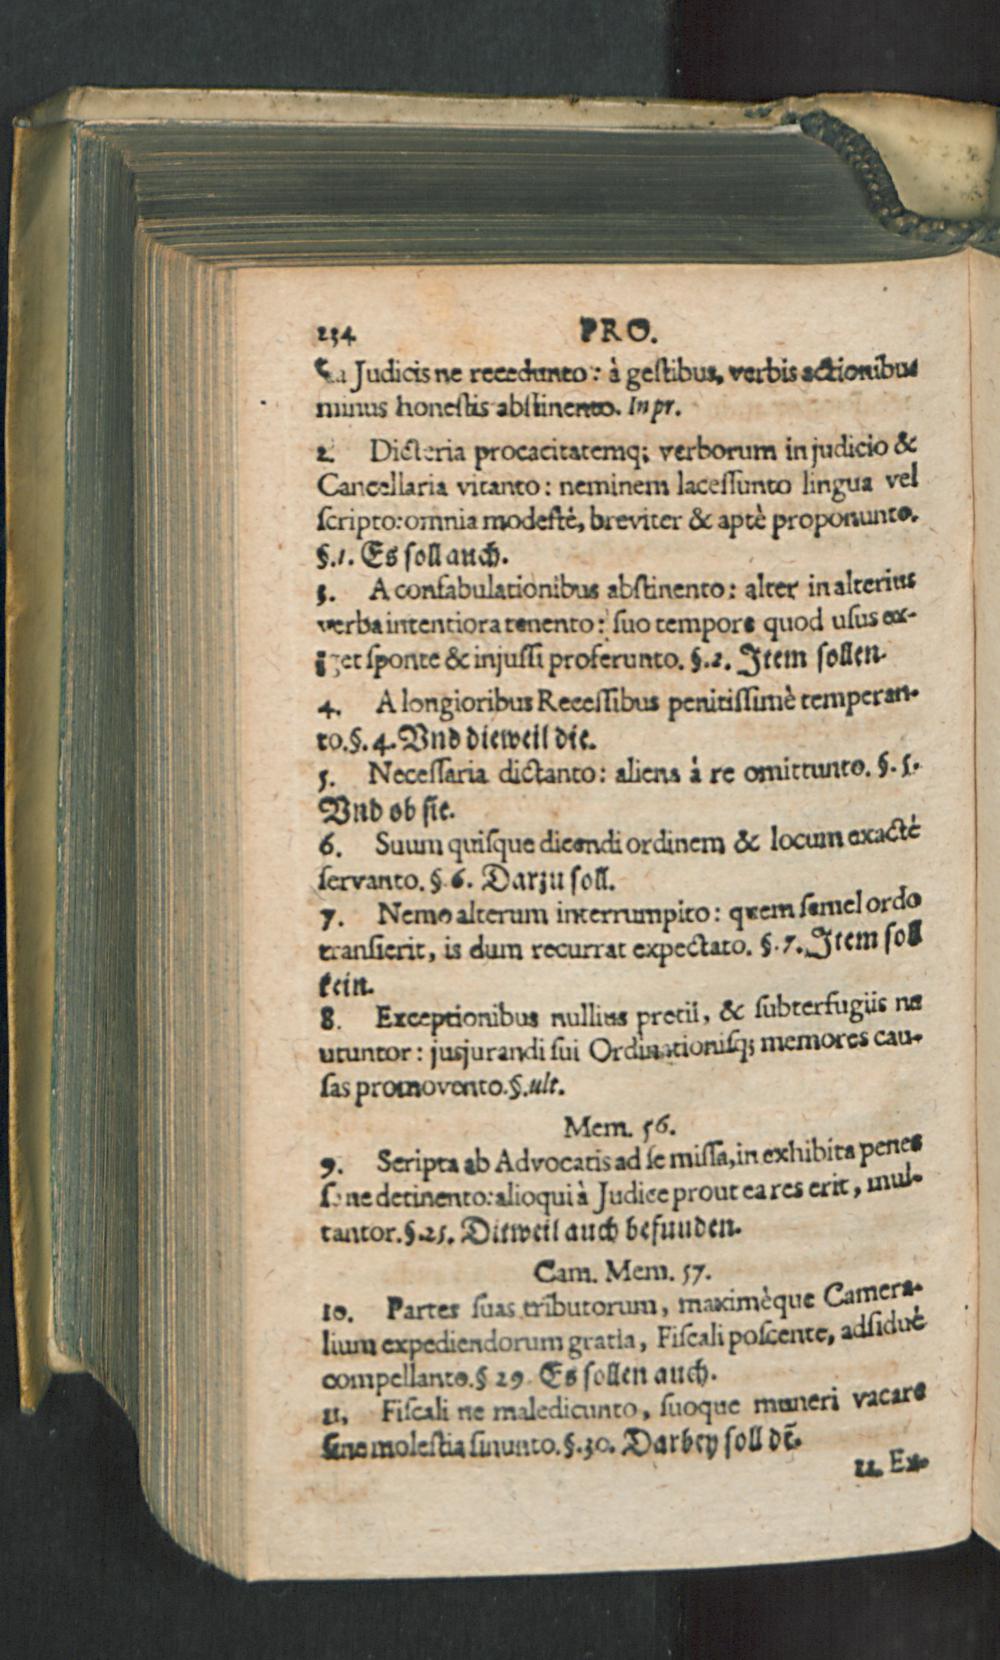 234 PRO.
Judicis ne recedunto: à gestibus, verbis actionibus
minus honestis abstinento. In pr.
2. Dicteria procacitatemq; verborum in judicio &
Cancellaria vitanto: neminem lacessunto lingua vel
scripto: omnia modestè, breviter & aptè proponunto.
§.1. Es soll auch.
3. A confabulationibus abstinento: alter in alterius
verba intentiora tenento: suo tempore quod usus ex-
iget sponte & injussi proferunto. §.2. Item sollen.
4. A longioribus Recessibus penitissimè temperan-
to. §. 4. Vnd dieweil die.
5. Necessaria dictanto: aliena à re omittunto. §. 5.
Vnd ob sie.
6. Suum quisque dicendi ordinem & locum exactè
servanto. §. 6. Darzu soll.
7. Nemo alterum interrumpito: quem semel ordo
transierit, is dum recurrat expectato. §.7. Item soll
kein.
8. Exceptionibus nullius pretii, & subterfugiis ne
utuntor: jusjurandi sui Ordinationisq; memores cau-
sas promovento. §.ult.
Mem. 56.
9. Scripta ab Advocatis ad se missa, in exhibita penes
se ne detinento: alioqui à Judice prout ea res erit, mul-
tantor. §.25. Dieweil auch befunden.
Cam. Mem. 57.
10. Partes suas tributorum, maximèque Camera-
lium expediendorum gratia, Fiscali poscente, adsiduè
compellanto. § 29. Es sollen auch.
11. Fiscali ne maledicunto, suoque muneri vacare
sine molestia sinunto. §.30. Darbey soll dẽ.
12. Ex-